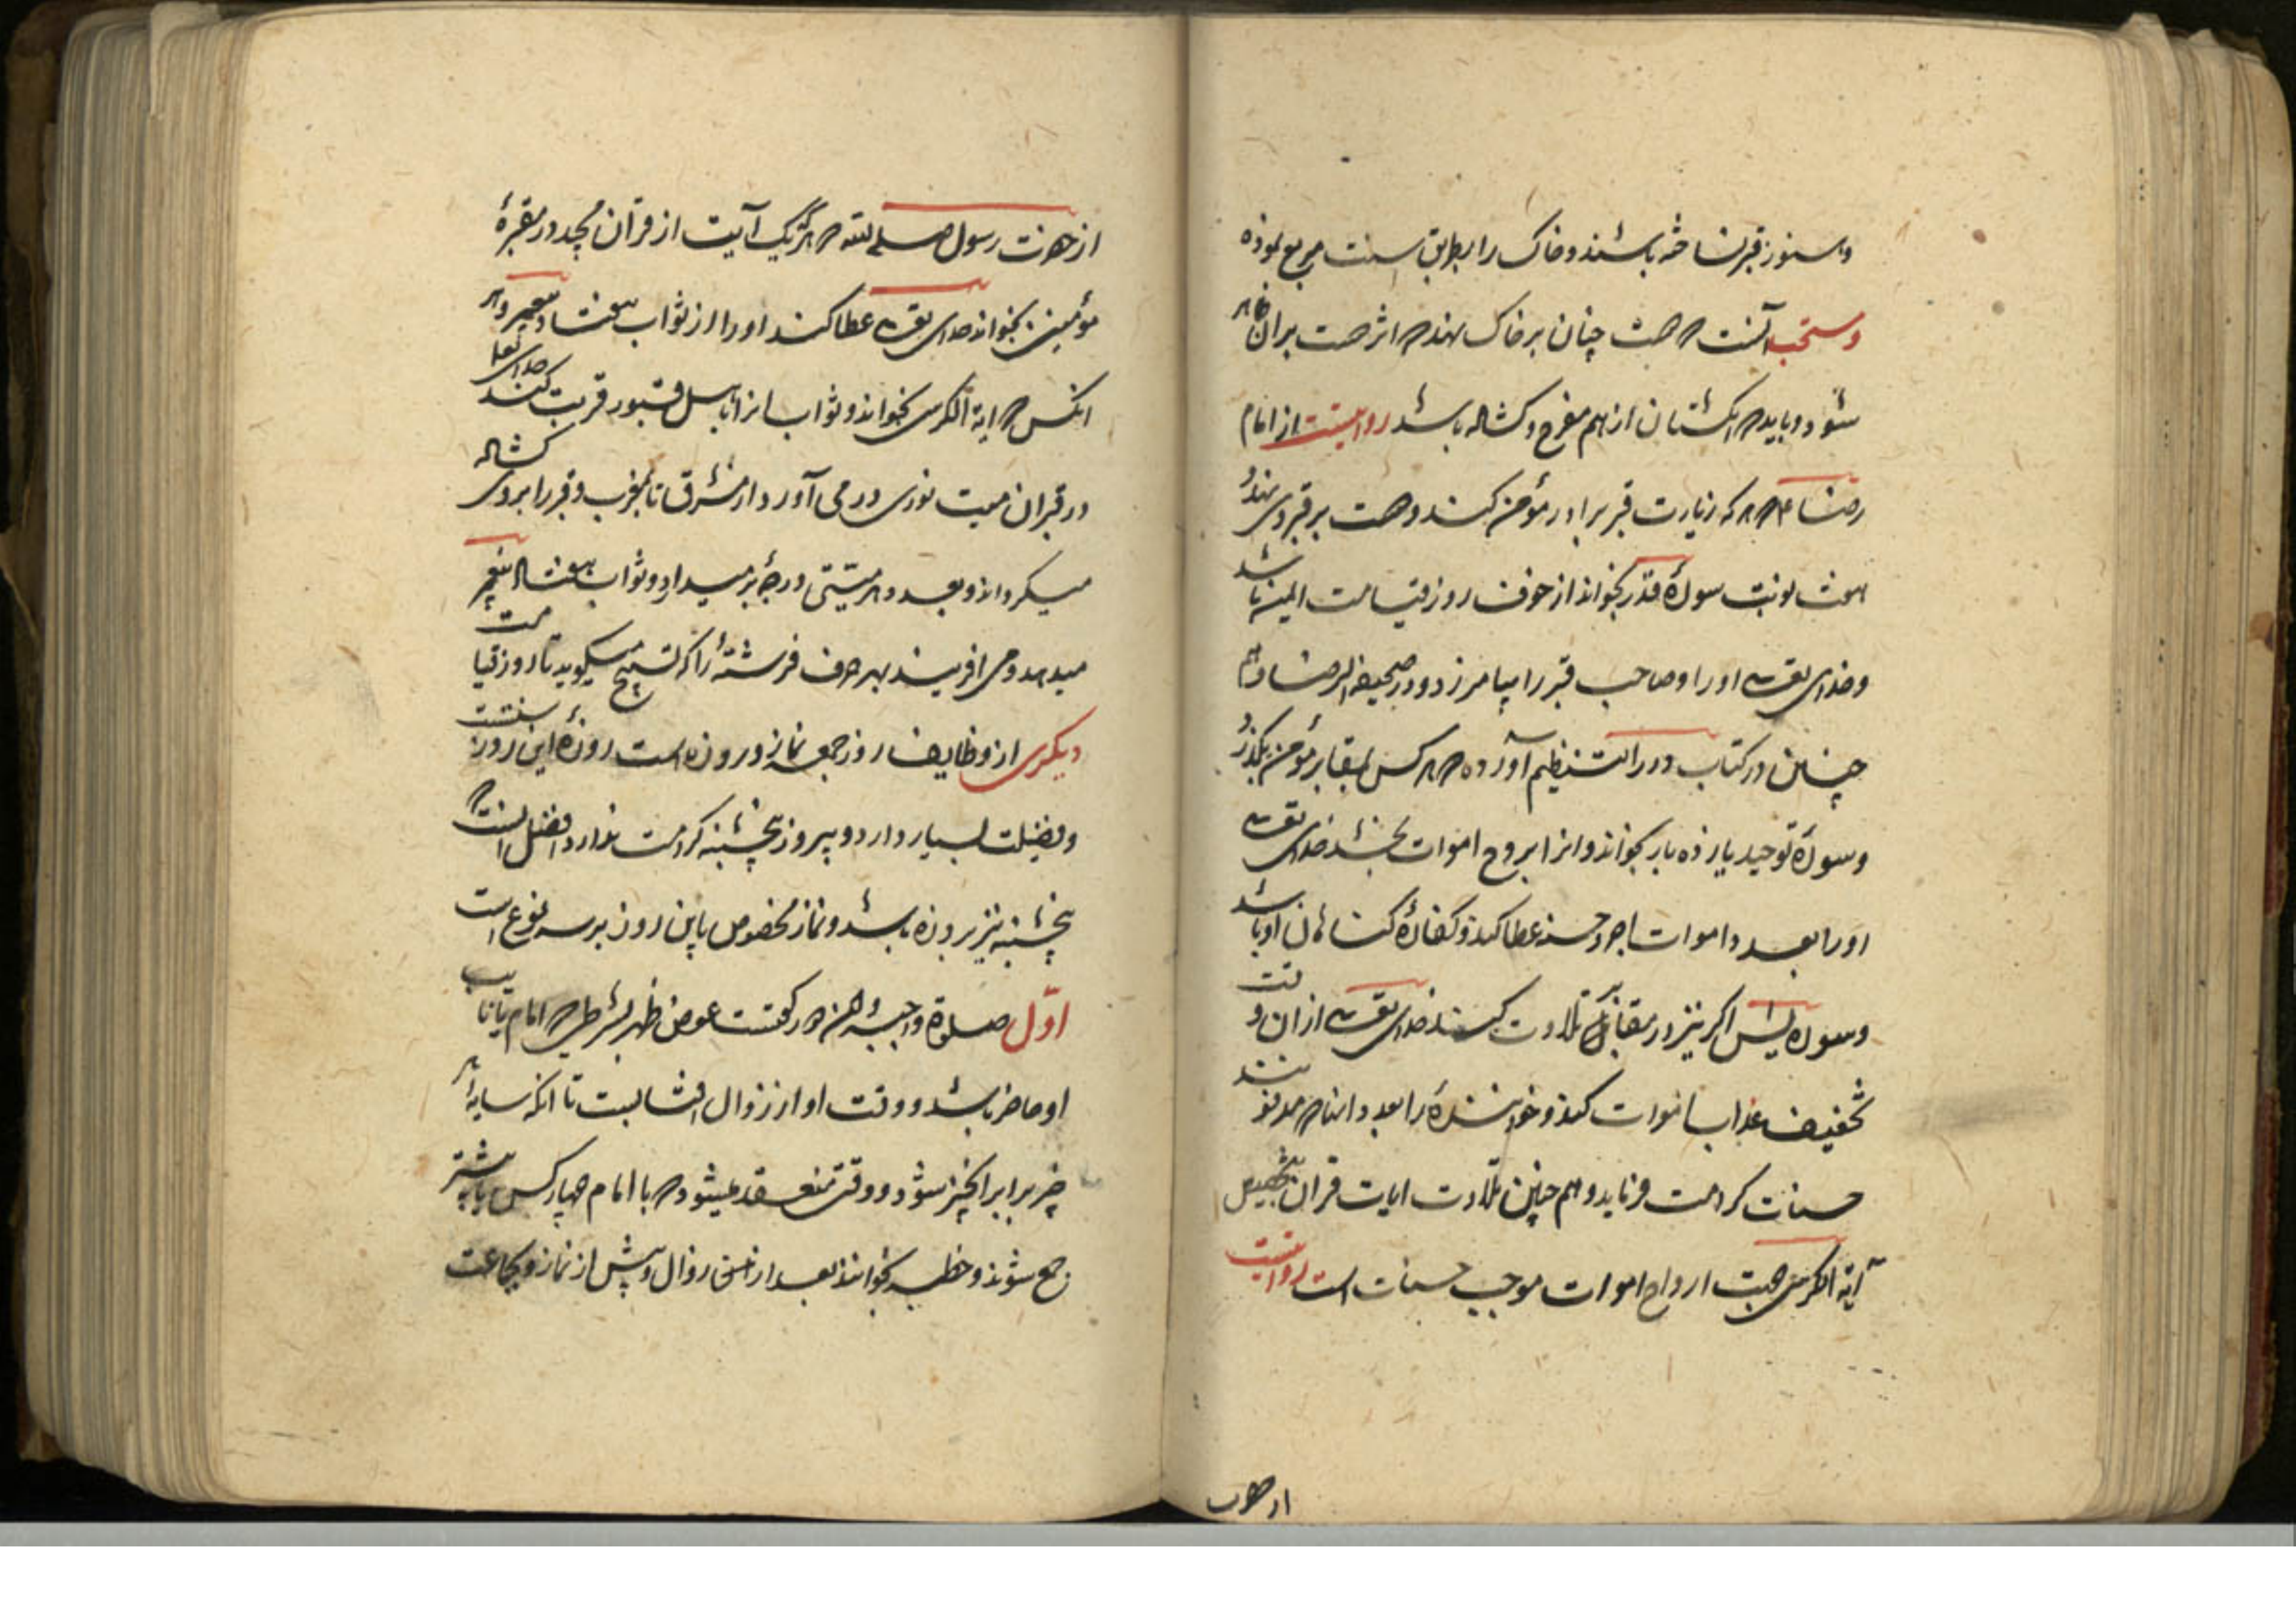 و هنوز قبر نساخته باشند و خاک را بطریق سنت مربع نموده
و مستحب آنست که دست چنان بر خاک نهد که اثر دست بران ظاهر
شود و باید که انگشتان از هم مفرج و کشاده باشد روایتست از امام
رضا ع که هر که زیارت قبر برادر مؤمن کند و دست بر قبر وی نهد و
هفت نوبت سورهٔ قدر بخواند از خوف روز قیامت ایمن باشد
و خدای تعالی او را و صاحب قبر را بیامرزد و در صحیفه الرضا و هم
چنین در کتاب درر النظیم آورده که هر کس بمقابر مؤمن بگذرد
و سورهٔ توحید یازده بار بخواند و انرا بروح اموات بخشد خدای تعالی
او را بعدد اموات اجر و حسنه عطا کند و کفارهٔ کناهان او باشد
و سوره یس اکر نیز در مقابر تلاوت کند خدای تعالی ازان وقت
تخفیف عذاب اموات کند و خوانندهٔ را بعدد انها که مدفونند
حسنات کرامت فرماید و هم چنین تلاوت ایات قران بتخصیص
آیة الکرسی جهت ارواح اموات موجب حسنات است روایتست
از حضرت
از حضرت رسول صلی الله که هر که یک آیت از قرآن مجید در مقبرهٔ
مؤمنین بخواند خدای تعالی عطا کند او را از ثواب هفتاد پیغمبر و هر
انکس که ایة الکرسی بخواند و ثواب انرا باهل قبور قربت کند خدای تعالی
در قبر ان میت نوری در می آورد از مشرق تا بمغرب و قبر را بروی کشاده
میکرداند و بعدد هر میتی درجهٔ بر میدارد و ثواب هفتاد پیغمبر
میدهد و می افریند بهر حرف فرشتهٔ را که تسبیح میکوید تا روز قیامت
دیکری از وظایف روز جمعه نماز و روزه است روزهٔ این روز سنتست
و فضیلت بسیار دارد و بی روز پنجشنبه کراهت ندارد و افضل انست که
پنجشنبه نیز بروزه باشد و نماز مخصوص باین روز بر سه نوع است
اوّل صلوة واجبه و ان دو رکعتست عوض ظهر بشرطی که امام یا نایب
او حاضر باشد و وقت او از زوال افتابست تا انکه سایهٔ هر
چیز برابر انچیز شود و وقتی منعقد میشود که با امام چهار کس یا بیشتر
جمع شوند و خطبه بخوانند بعد از زوال و پیش از نماز و بجماعت